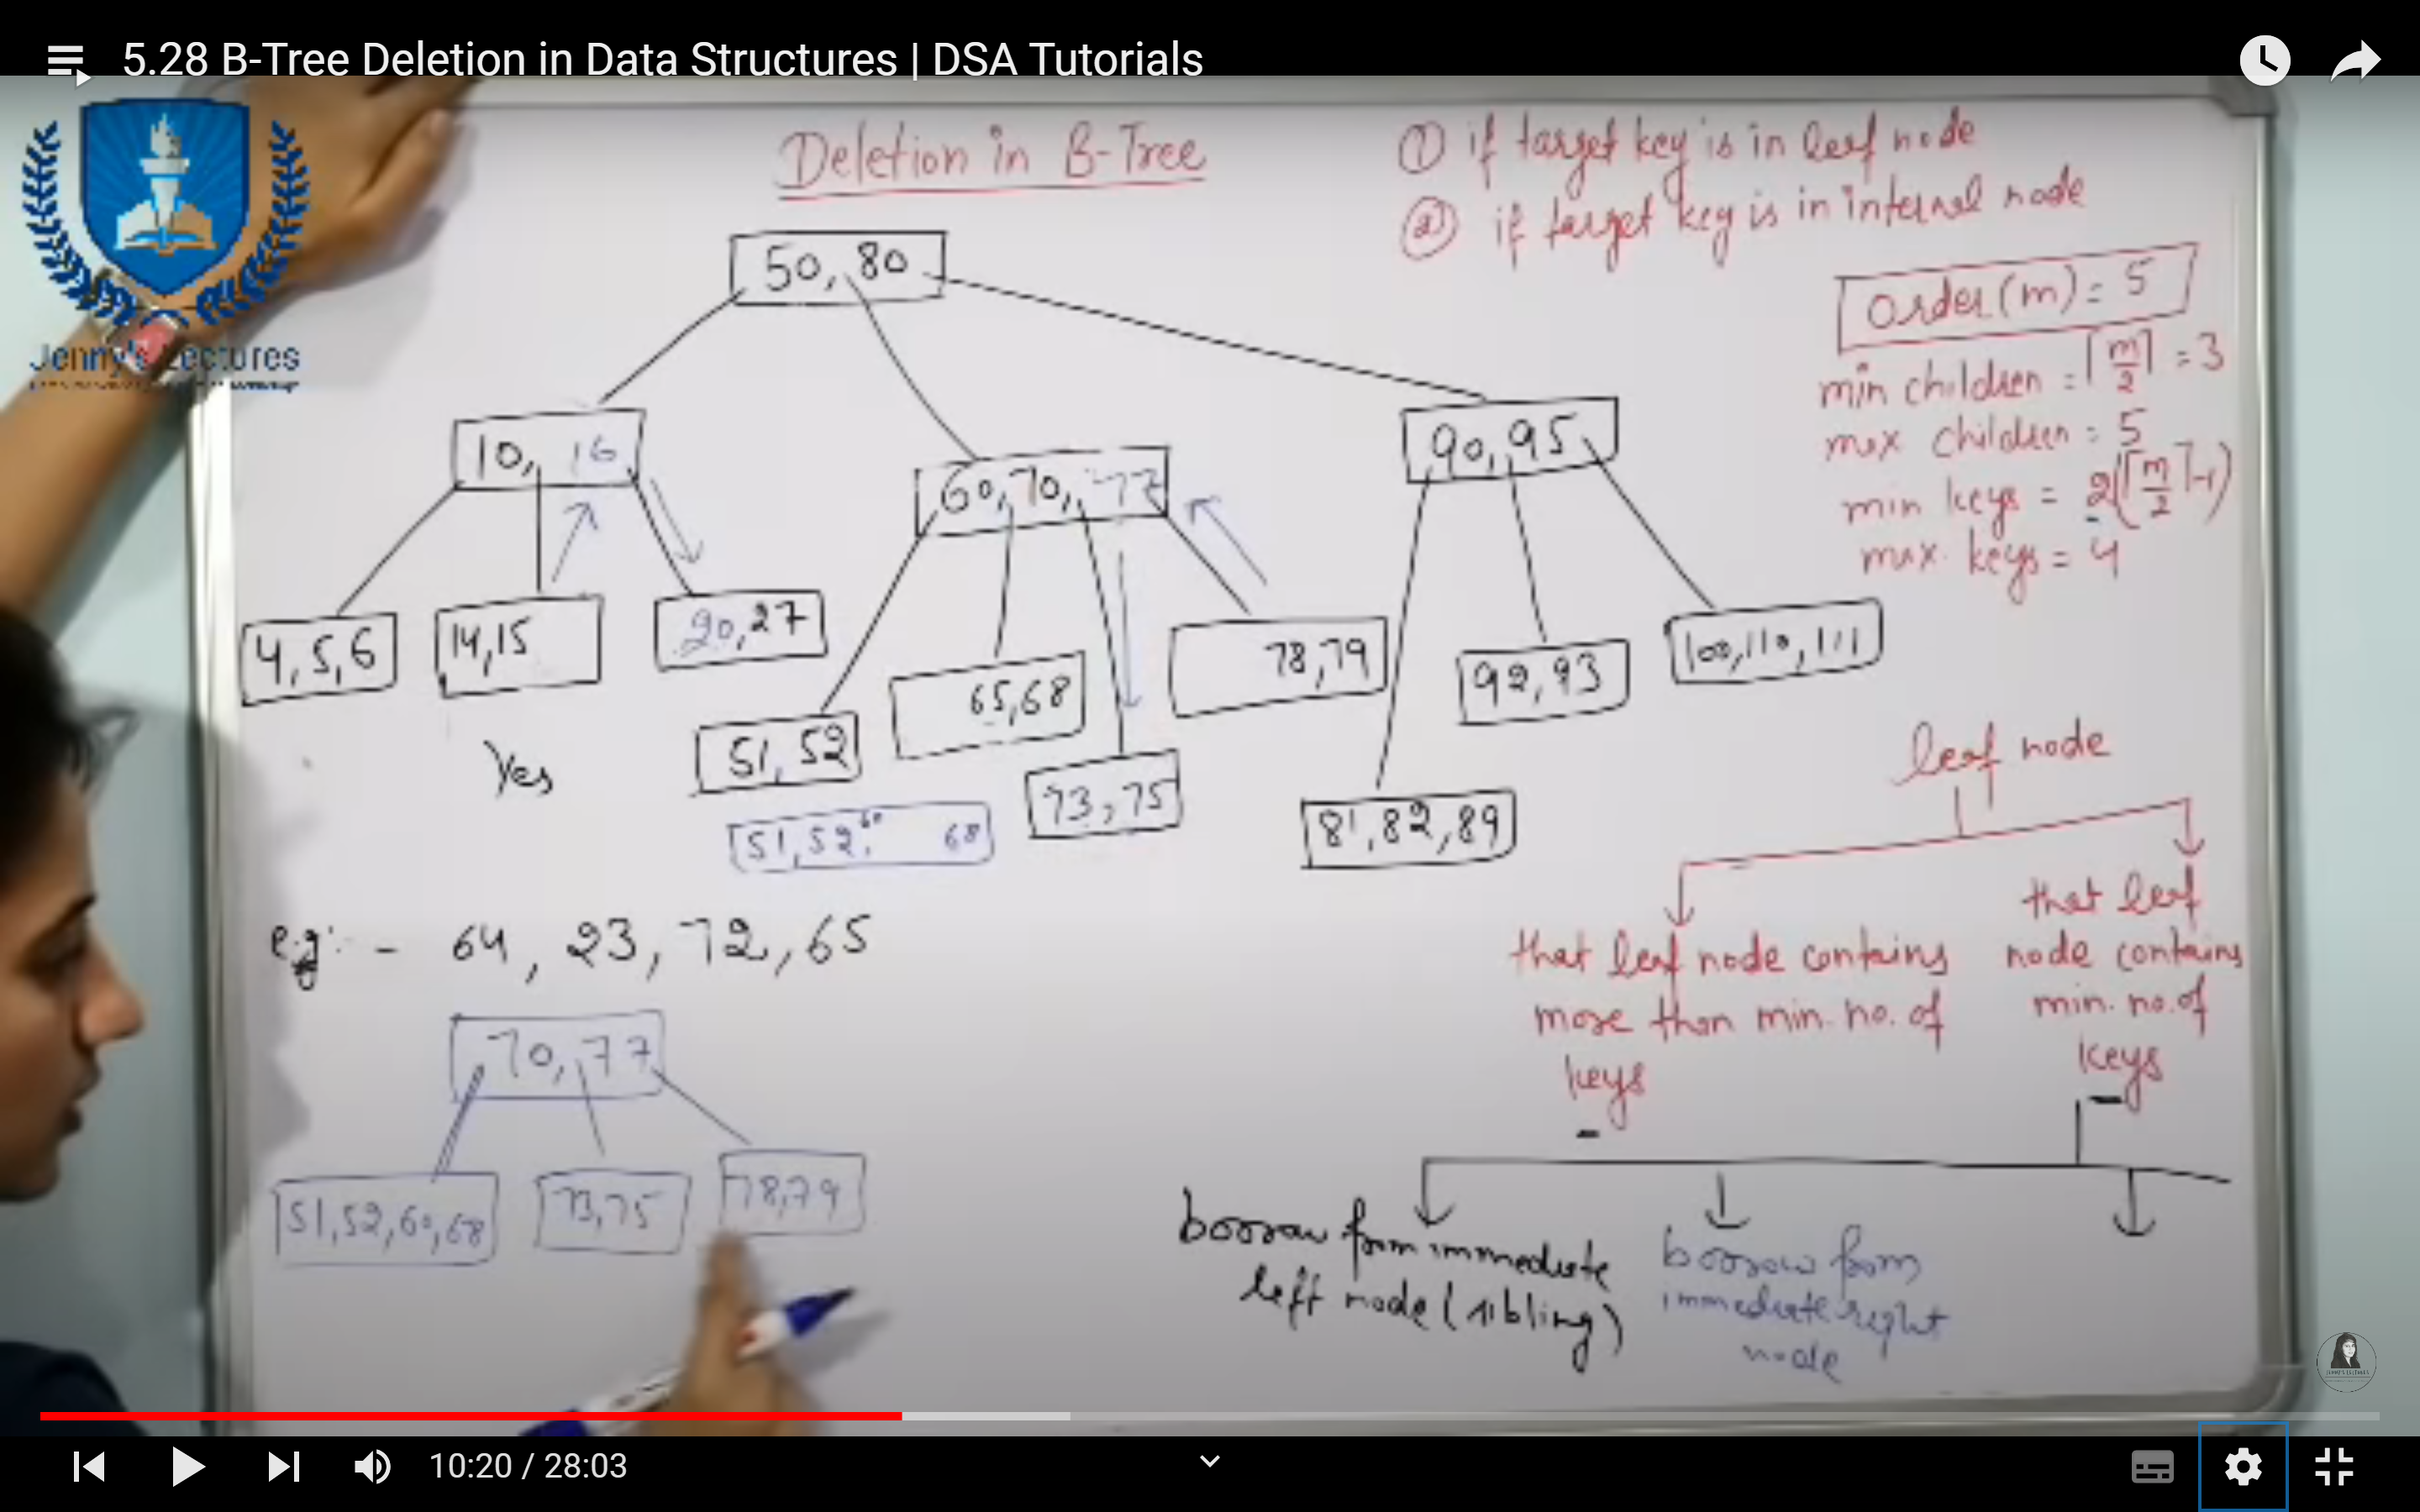 5.28 B-Tree Deletion in Data Structures | DSA Tutorials
Jenny's Lectures
Deletion in B-Tree
① if target key is in leaf node
② if target key is in internal node
50, 80
order(m) = 5
min children = ⌈m/2⌉ = 3
max children = 5
min keys = 2(⌈m/2⌉-1)
max. keys = 4
10, 16
60,70, 77
90,95
4,5,6
14,15
20,27
51,52
65,68
73,75
78,79
81,82,89
92,93
100,110,111
Yes
51,52,60 68
leaf node
that leaf node contains
more than min. no. of
keys
that leaf
node contains
min. no. of
keys
e.g:- 64, 23, 72, 65
70, 77
51,52,60,68
73,75
78,79
borrow from immediate
left node (sibling)
borrow from
immediate right
node
10:20 / 28:03